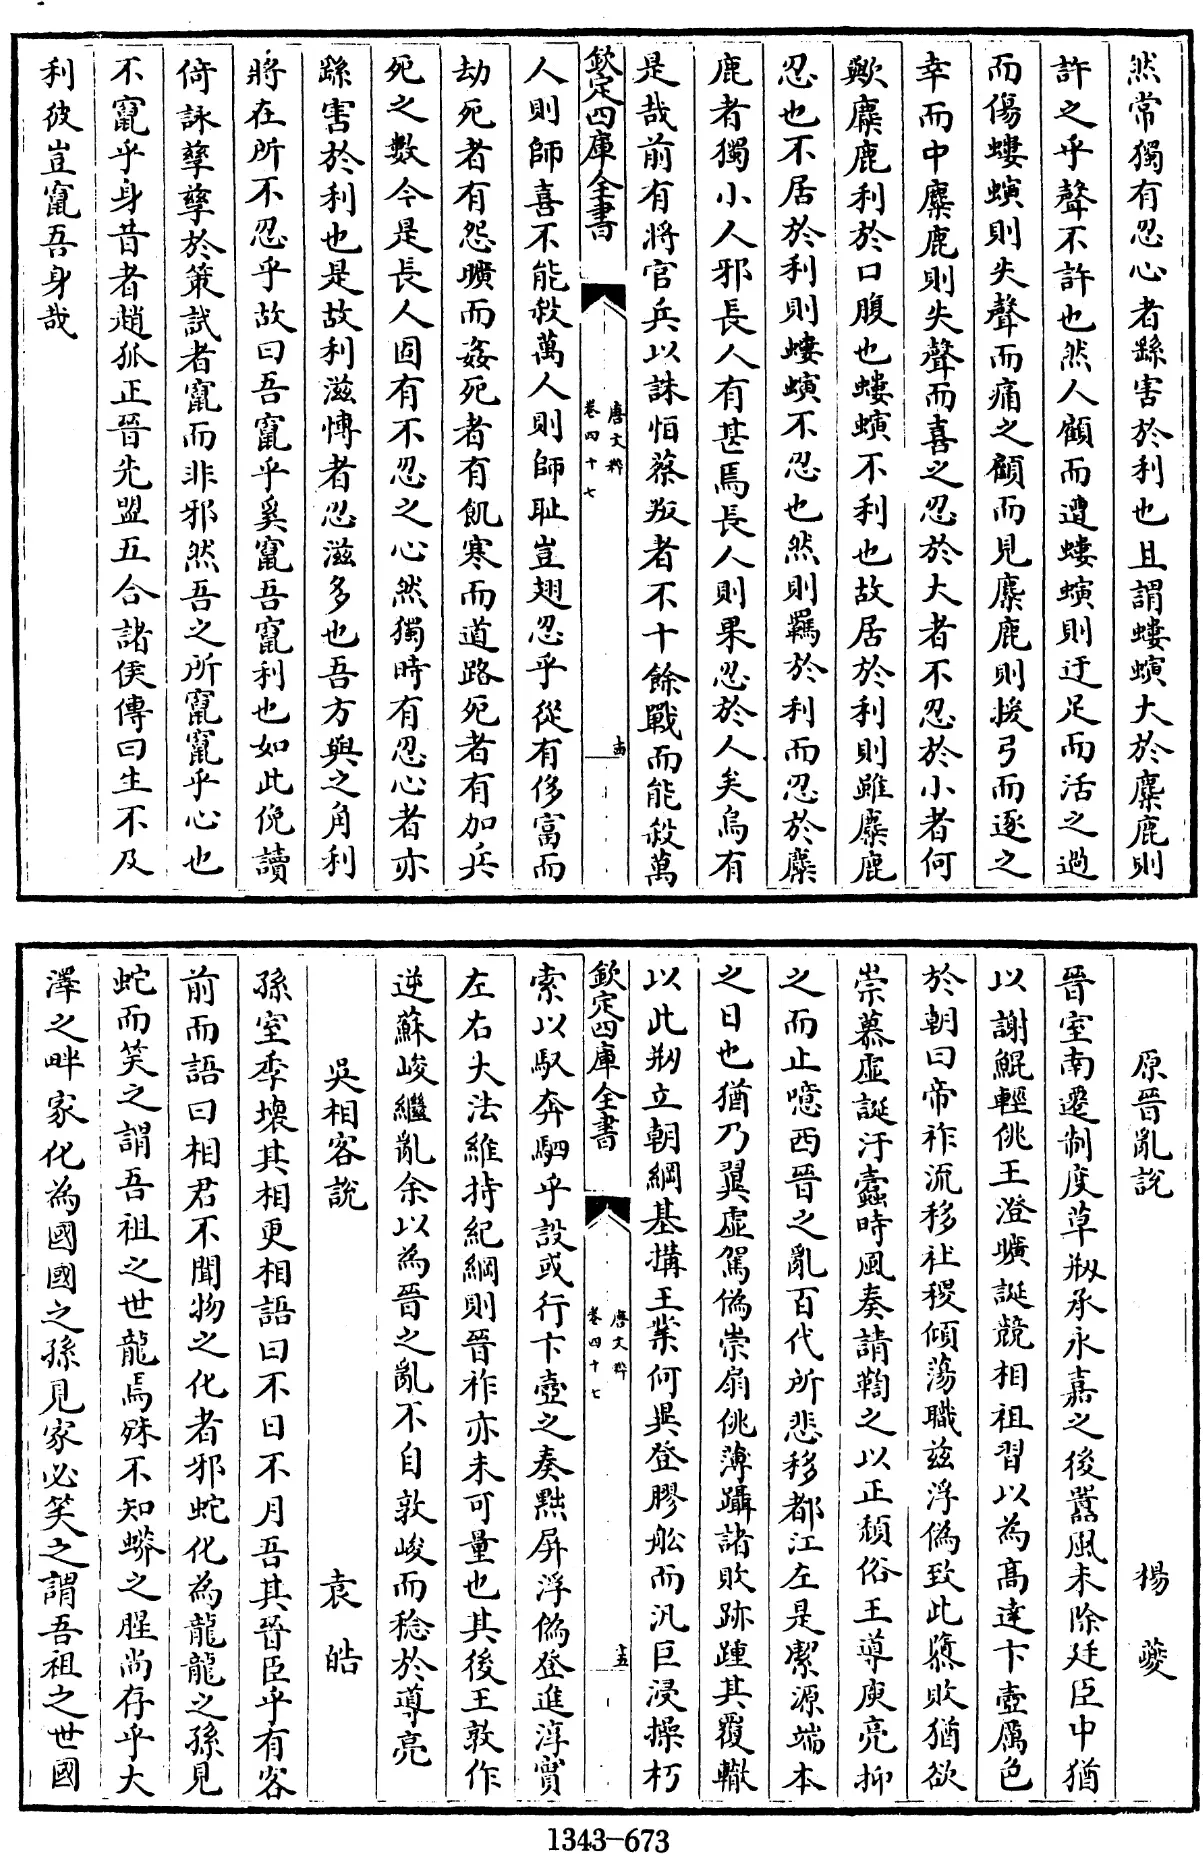 然常獨有忍心者繇害於利也且謂螻螾大於麋鹿則
許之乎聲不許也然人顧而遭螻螾則迂足而活之過
而傷螻螾則失聲而痛之顧而見麋鹿則援弓而逐之
幸而中麋鹿則失聲而喜之忍於大者不忍於小者何
歟麋鹿利於口腹也螻螾不利也故居於利則雖麋鹿
忍也不居於利則螻螾不忍也然則羈於利而忍於麋
鹿者獨小人邪長人有甚焉長人則果忍於人矣烏有
是哉前有將官兵以誅恒蔡叛者不十餘戰而能殺萬
欽定四庫全書
唐文粹
卷四十七
十四
人則師喜不能殺萬人則師耻豈翅忍乎從有侈富而
劫死者有怨曠而姦死者有飢寒而道路死者有加兵
死之數今是長人固有不忍之心然獨時有忍心者亦
繇害於利也是故利滋慱者忍滋多也吾方與之角利
將在所不忍乎故曰吾竄乎奚竄吾竄利也如此俛讀
倚詠孳孳於策試者竄而非邪然吾之所竄竄乎心也
不竄乎身昔者趙孤正晉先盟五合諸侯傳曰生不及
利彼豈竄吾身哉
原晉亂說　楊夔
晉室南遷制度草刱承永嘉之後囂風未除廷臣中猶
以謝鯤輕佻王澄曠誕競相祖習以為髙達卞壼厲色
於朝曰帝祚流移社稷傾蕩職茲浮偽致此隳敗猶欲
崇慕虛誕汙蠹時風奏請鞫之以正頹俗王導庾亮抑
之而止噫西晉之亂百代所悲移都江左是潔源端本
之日也猶乃翼虛駕偽崇扇佻薄躡諸敗跡踵其覆轍
以此刱立朝綱基搆王業何異登膠舩而汎巨浸操朽
欽定四庫全書
唐文粹
卷四十七
十五
索以馭奔駟乎設或行卞壼之奏黜屏浮偽登進淳實
左右大法維持紀綱則晉祚亦未可量也其後王敦作
逆蘇峻繼亂余以為晉之亂不自敦峻而稔於導亮
吳相客說　袁皓
孫室季壞其相更相語曰不日不月吾其晉臣乎有客
前而語曰相君不聞物之化者邪蛇化為龍龍之孫見
蛇而笑之謂吾祖之世龍焉殊不知蟒之腥尚存乎大
澤之畔家化為國國之孫見家必笑之謂吾祖之世國
1343-673